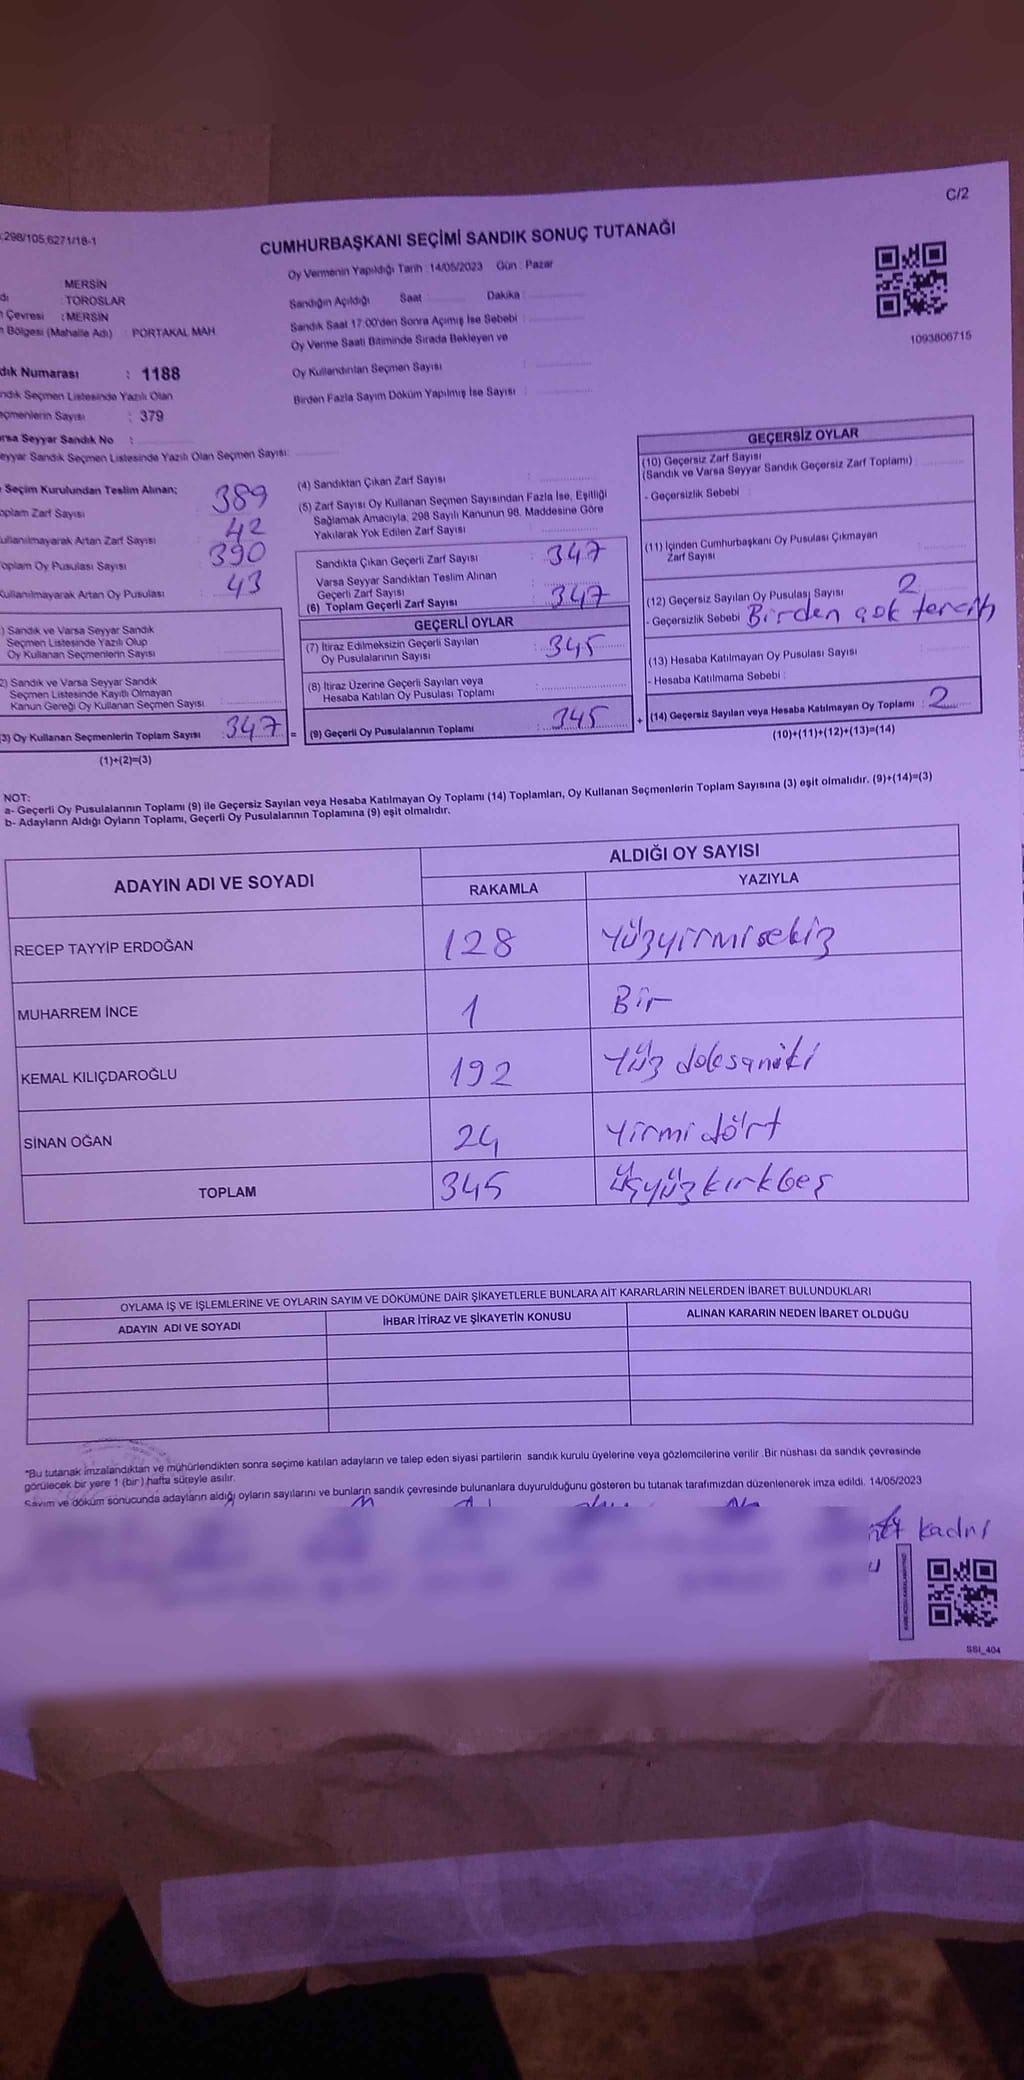 C/2
:298/105,6271/18-1
CUMHURBAŞKANI SEÇİMİ SANDIK SONUÇ TUTANAĞI
Oy Vermenin Yapıldığı Tarih :14/05/2023 Gün : Pazar
: MERSİN
dı : TOROSLAR
n Çevresi : MERSİN
n Bölgesi (Mahalle Adı) : PORTAKAL MAH.
Sandığın Açıldığı Saat : Dakika :
Sandık Saat 17:00'den Sonra Açımış İse Sebebi :
Oy Verme Saati Bitiminde Sırada Bekleyen ve
Oy Kullandırılan Seçmen Sayısı :
Birden Fazla Sayım Döküm Yapılmış İse Sayısı :
1093806715
dık Numarası : 1188
ndık Seçmen Listesinde Yazılı Olan
eçmenlerin Sayısı : 379
rsa Seyyar Sandık No :
eyyar Sandık Seçmen Listesinde Yazılı Olan Seçmen Sayısı:
Seçim Kurulundan Teslim Alınan;
oplam Zarf Sayısı : 389
ullanılmayarak Artan Zarf Sayısı : 42
oplam Oy Pusulası Sayısı : 390
Kullanılmayarak Artan Oy Pusulası : 43
) Sandık ve Varsa Seyyar Sandık
Seçmen Listesinde Yazılı Olup
Oy Kullanan Seçmenlerin Sayısı
2) Sandık ve Varsa Seyyar Sandık
Seçmen Listesinde Kayıtlı Olmayan
Kanun Gereği Oy Kullanan Seçmen Sayısı :
(3) Oy Kullanan Seçmenlerin Toplam Sayısı : 347 =
(1)+(2)=(3)
(4) Sandıktan Çıkan Zarf Sayısı :
(5) Zarf Sayısı Oy Kullanan Seçmen Sayısından Fazla İse, Eşitliği
Sağlamak Amacıyla, 298 Sayılı Kanunun 98. Maddesine Göre
Yakılarak Yok Edilen Zarf Sayısı :
Sandıkta Çıkan Geçerli Zarf Sayısı : 347
Varsa Seyyar Sandıktan Teslim Alınan
Geçerli Zarf Sayısı :
(6) Toplam Geçerli Zarf Sayısı : 347
GEÇERLİ OYLAR
(7) İtiraz Edilmeksizin Geçerli Sayılan
Oy Pusulalarının Sayısı : 345
(8) İtiraz Üzerine Geçerli Sayılan veya
Hesaba Katılan Oy Pusulası Toplamı :
(9) Geçerli Oy Pusulalarının Toplamı : 345 +
GEÇERSİZ OYLAR
(10) Geçersiz Zarf Sayısı
(Sandık ve Varsa Seyyar Sandık Geçersiz Zarf Toplamı) :
- Geçersizlik Sebebi :
(11) İçinden Cumhurbaşkanı Oy Pusulası Çıkmayan
Zarf Sayısı :
(12) Geçersiz Sayılan Oy Pusulası Sayısı : 2
- Geçersizlik Sebebi : Birden çok tercih
(13) Hesaba Katılmayan Oy Pusulası Sayısı :
- Hesaba Katılmama Sebebi :
(14) Geçersiz Sayılan veya Hesaba Katılmayan Oy Toplamı : 2
(10)+(11)+(12)+(13)=(14)
NOT:
a- Geçerli Oy Pusulalarının Toplamı (9) ile Geçersiz Sayılan veya Hesaba Katılmayan Oy Toplamı (14) Toplamları, Oy Kullanan Seçmenlerin Toplam Sayısına (3) eşit olmalıdır. (9)+(14)=(3)
b- Adayların Aldığı Oyların Toplamı, Geçerli Oy Pusulalarının Toplamına (9) eşit olmalıdır.
ADAYIN ADI VE SOYADI ALDIĞI OY SAYISI
RAKAMLA YAZIYLA
RECEP TAYYİP ERDOĞAN 128 Yüzyirmisekiz
MUHARREM İNCE 1 Bir
KEMAL KILIÇDAROĞLU 192 Yüz doksaniki
SİNAN OĞAN 24 Yirmi dört
TOPLAM 345 Üçyüzkırkbeş
OYLAMA İŞ VE İŞLEMLERİNE VE OYLARIN SAYIM VE DÖKÜMÜNE DAİR ŞİKAYETLERLE BUNLARA AİT KARARLARIN NELERDEN İBARET BULUNDUKLARI
ADAYIN ADI VE SOYADI İHBAR İTİRAZ VE ŞİKAYETİN KONUSU ALINAN KARARIN NEDEN İBARET OLDUĞU
*Bu tutanak imzalandıktan ve mühürlendikten sonra seçime katılan adayların ve talep eden siyasi partilerin sandık kurulu üyelerine veya gözlemcilerine verilir .Bir nüshası da sandık çevresinde
görülecek bir yere 1 (bir) hafta süreyle asılır.
Sayım ve döküm sonucunda adayların aldığı oyların sayılarını ve bunların sandık çevresinde bulunanlara duyurulduğunu gösteren bu tutanak tarafımızdan düzenlenerek imza edildi. 14/05/2023
kadri
SSI_404